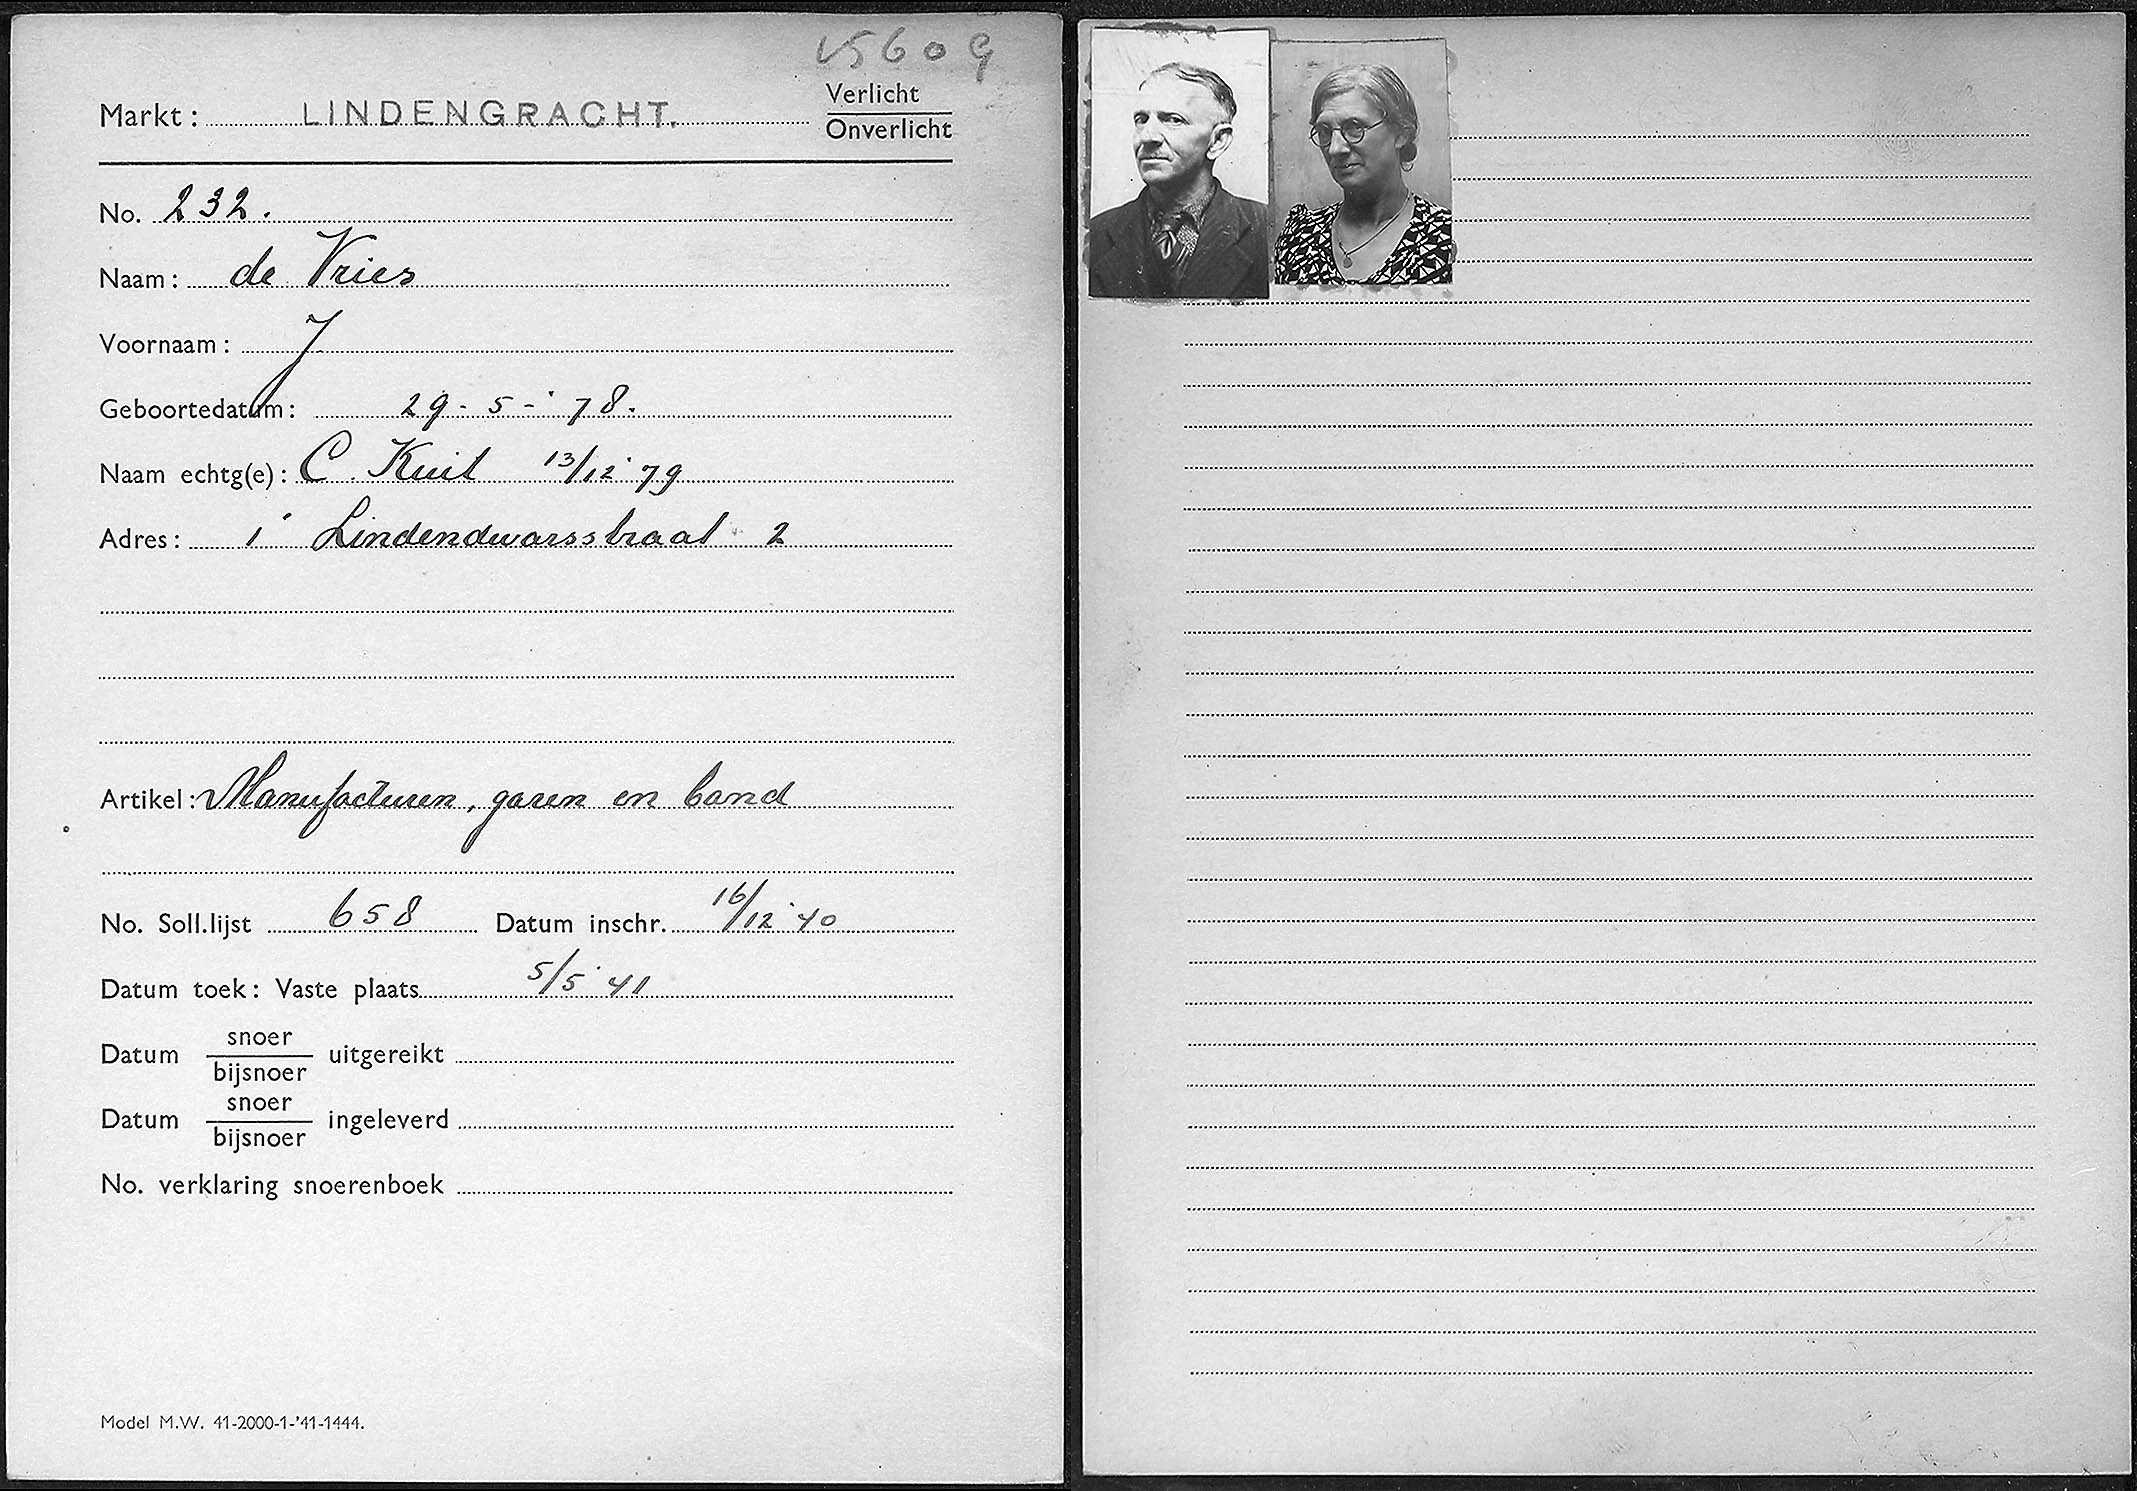 V5609
Markt: LINDENGRACHT. Verlicht
Onverlicht
No. 232.
Naam: de Vries
Voornaam: J
Geboortedatum: 29-5-'78.
Naam echtg(e): C. Kuit 13/12'79
Adres: 1e Lindendwarsstraat 2
Artikel: Manufacturen, garen en band
No. Soll.lijst 658 Datum inschr. 16/12'40
Datum toek: Vaste plaats 5/5'41
Datum snoer
bijsnoer uitgereikt
Datum snoer
bijsnoer ingeleverd
No. verklaring snoerenboek
Model M.W. 41-2000-1-'41-1444.